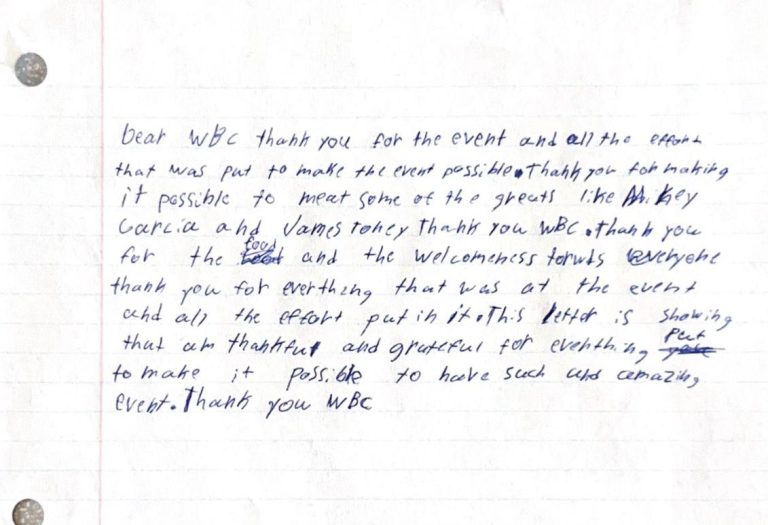 Dear WBC thank you for the event and all the effort
that was put to make the event possible. Thank you for making
it possible to meat some of the greats like Mikey
Garcia and James toney Thank you WBC. thank you
for the food and the welcomeness torwds everyone
thank you for everthing that was at the event
and all the effort put in it. This letter is showing
that am thankful and grateful for evenhting put
to make it possible to have such and amazing
event. Thank you WBC